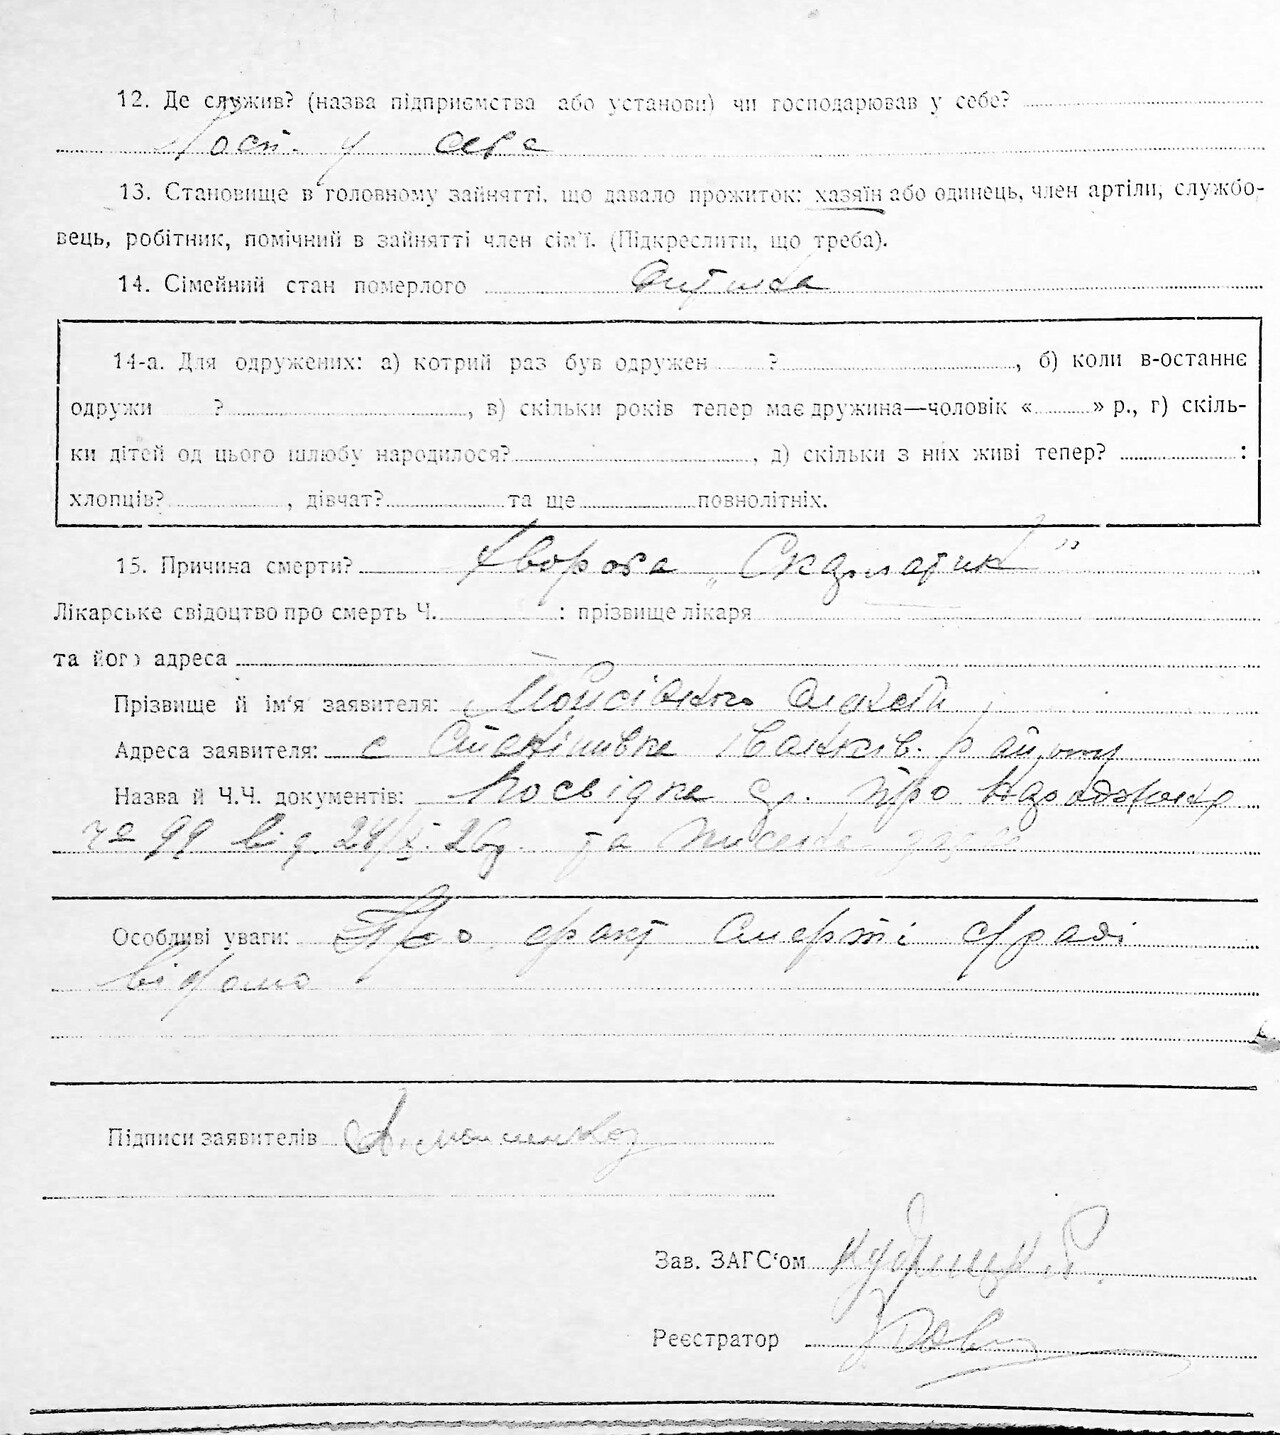 12. Де служив? (назва підприємства або установи) чи господарював у себе?
Госп. у себе
13. Становище в головному зайнятті, що давало прожиток: хазяїн або одинець, член артіли, службо-
вець, робітник, помічний в зайнятті член сім'ї. (Підкреслити, що треба).
14. Сімейний стан померлого дитина
14-а. Для одружених: а) котрий раз був одружен ?, б) коли в-останнє
одружи ?, в) скільки років тепер має дружина—чоловік « » р., г) скіль-
ки дітей од цього шлюбу народилося?, д) скільки з них живі тепер? :
хлопців?, дівчат? та ще повнолітніх.
15. Причина смерти? Хвороба „Скарлатина"
Лікарське свідоцтво про смерть Ч. : прізвище лікаря
та його адреса
Прізвище й ім'я заявителя: Мойсієнко Олексій
Адреса заявителя: с Станішівка Іванків. району
Назва й Ч.Ч. документів: посвідка про народження
№ 99 від 24/X. 26р. та
Особливі уваги: Про факт смерті сраді
відомо
Підписи заявителів А. Моисиенко
Зав. ЗАГС'ом Кудрицкий
Реєстратор